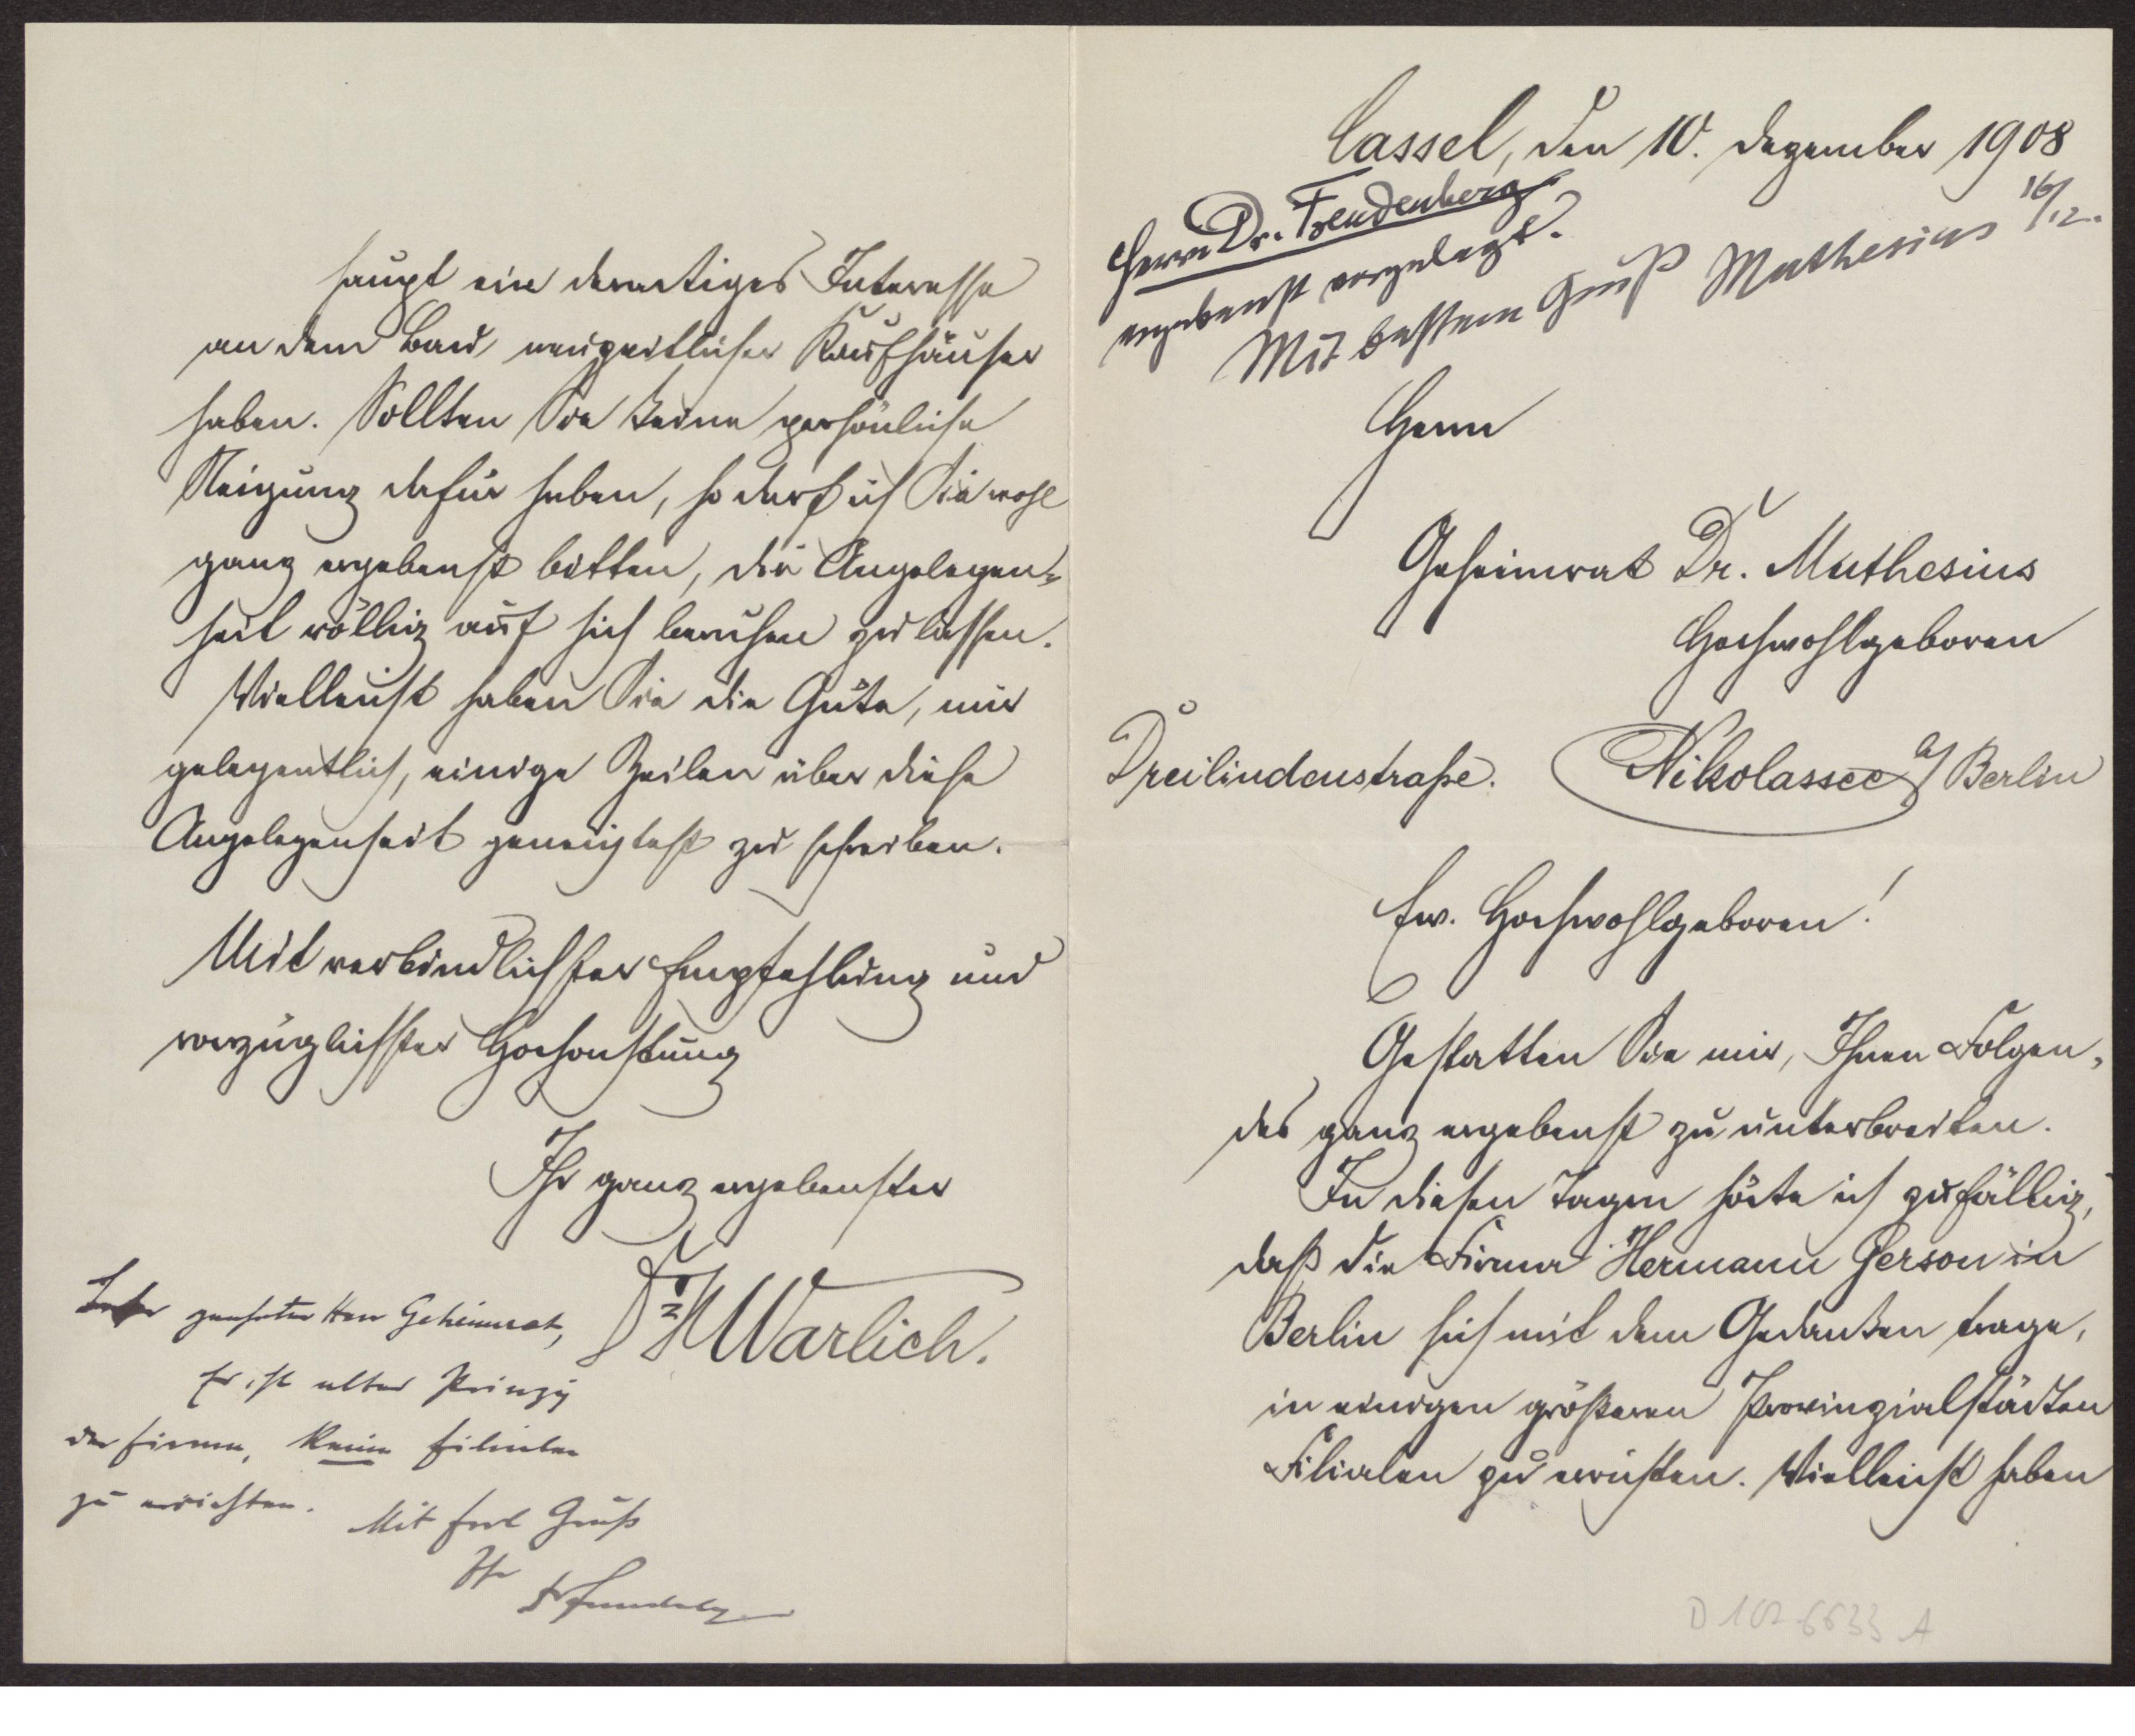 Cassel, den 10. Dezember 1908
Herrn Dr. Freudenberg
ergebenst vorgelegt.
Mit bestem Gruß Muthesius 16/12.
Herrn
Geheimrat Dr. Muthesius
Hochwohlgeboren
Dreilindenstraße. Nikolassee a/ Berlin
Ew. Hochwohlgeboren!
Gestatten Sie mir, Ihnen Folgen-
des ganz ergebenst zu unterbreiten.
In diesen Tagen hörte ich zufällig,
daß die Firma Hermann Gerson in
Berlin sich mit dem Gedanken trage,
in einigen größeren Provinzialstädten
Filialen zu errichten. Vielleicht haben
haupt ein derartiges Interesse
an dem Bau neuzeitlicher Kaufhäuser
haben. Sollten Sie keine persönliche
Neigung dafür haben, so darf ich Sie wohl
ganz ergebenst bitten, die Angelegen-
heit völlig auf sich beruhen zu lassen.
Vielleicht haben Sie die Güte, mir
gelegentlich, einige Zeilen über diese
Angelegenheit geneigtest zu schreiben.
Mit verbindlichster Empfehlung und
vorzüglichster Hochachtung
Ihr ganz ergebenster
Dr H Warlich.
Sehr geehrter Herr Geheimrat,
Es ist altes Prinzip
der Firma, keine Filialen
zu errichten.
Mit frdl Gruß
Ihr
Dr Freudenberg
D 102-6633 A